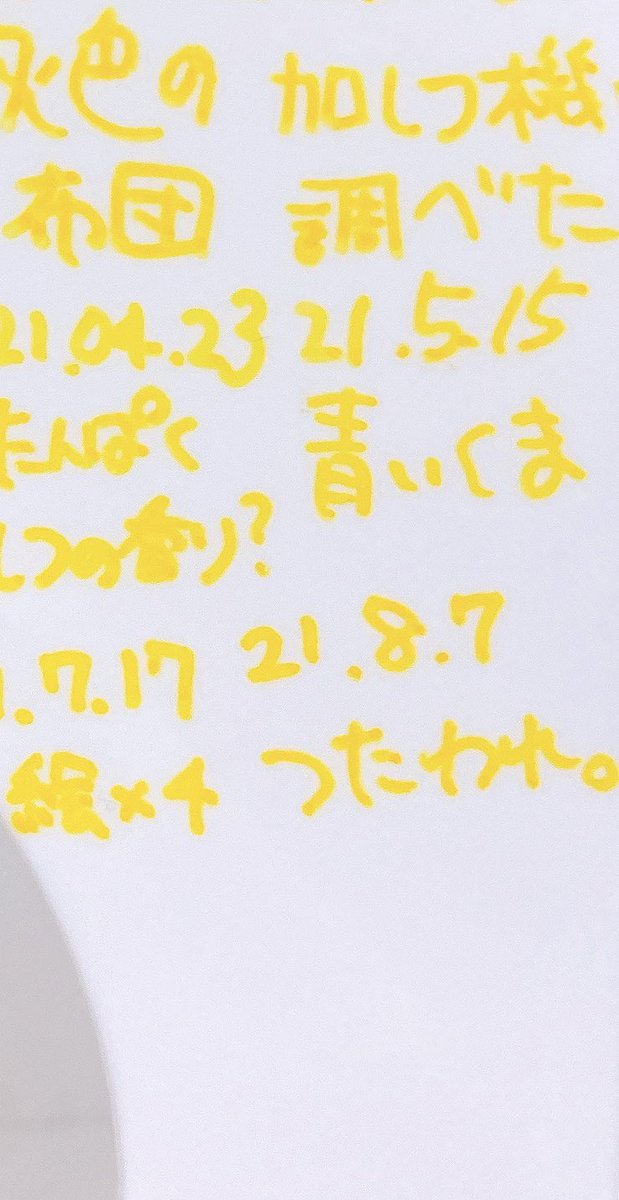 灰色の 加しつ機
布団 調べた
21.04.23 21.5.15
たんぱく 青いくま
しつの香り?
1.7.17 21.8.7
絵×4 つたわれ。